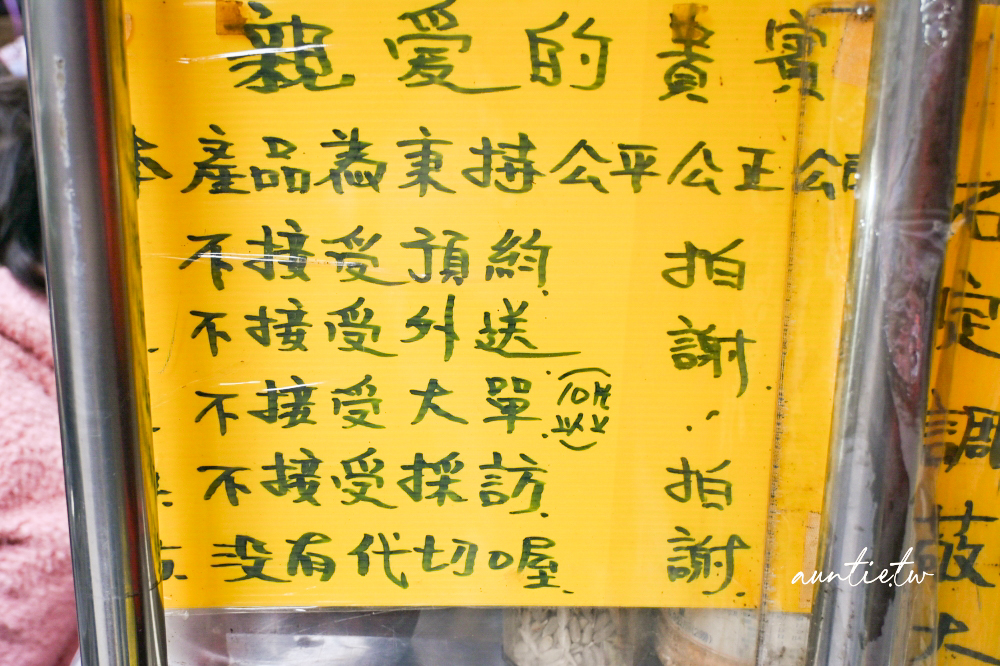 親愛的貴賓
本產品為秉持公平公正公
不接受預約
不接受外送
不接受大單(10片以上)
不接受採訪
沒有代切喔
拍謝.拍謝
石
定
調
鼓
auntie.tw